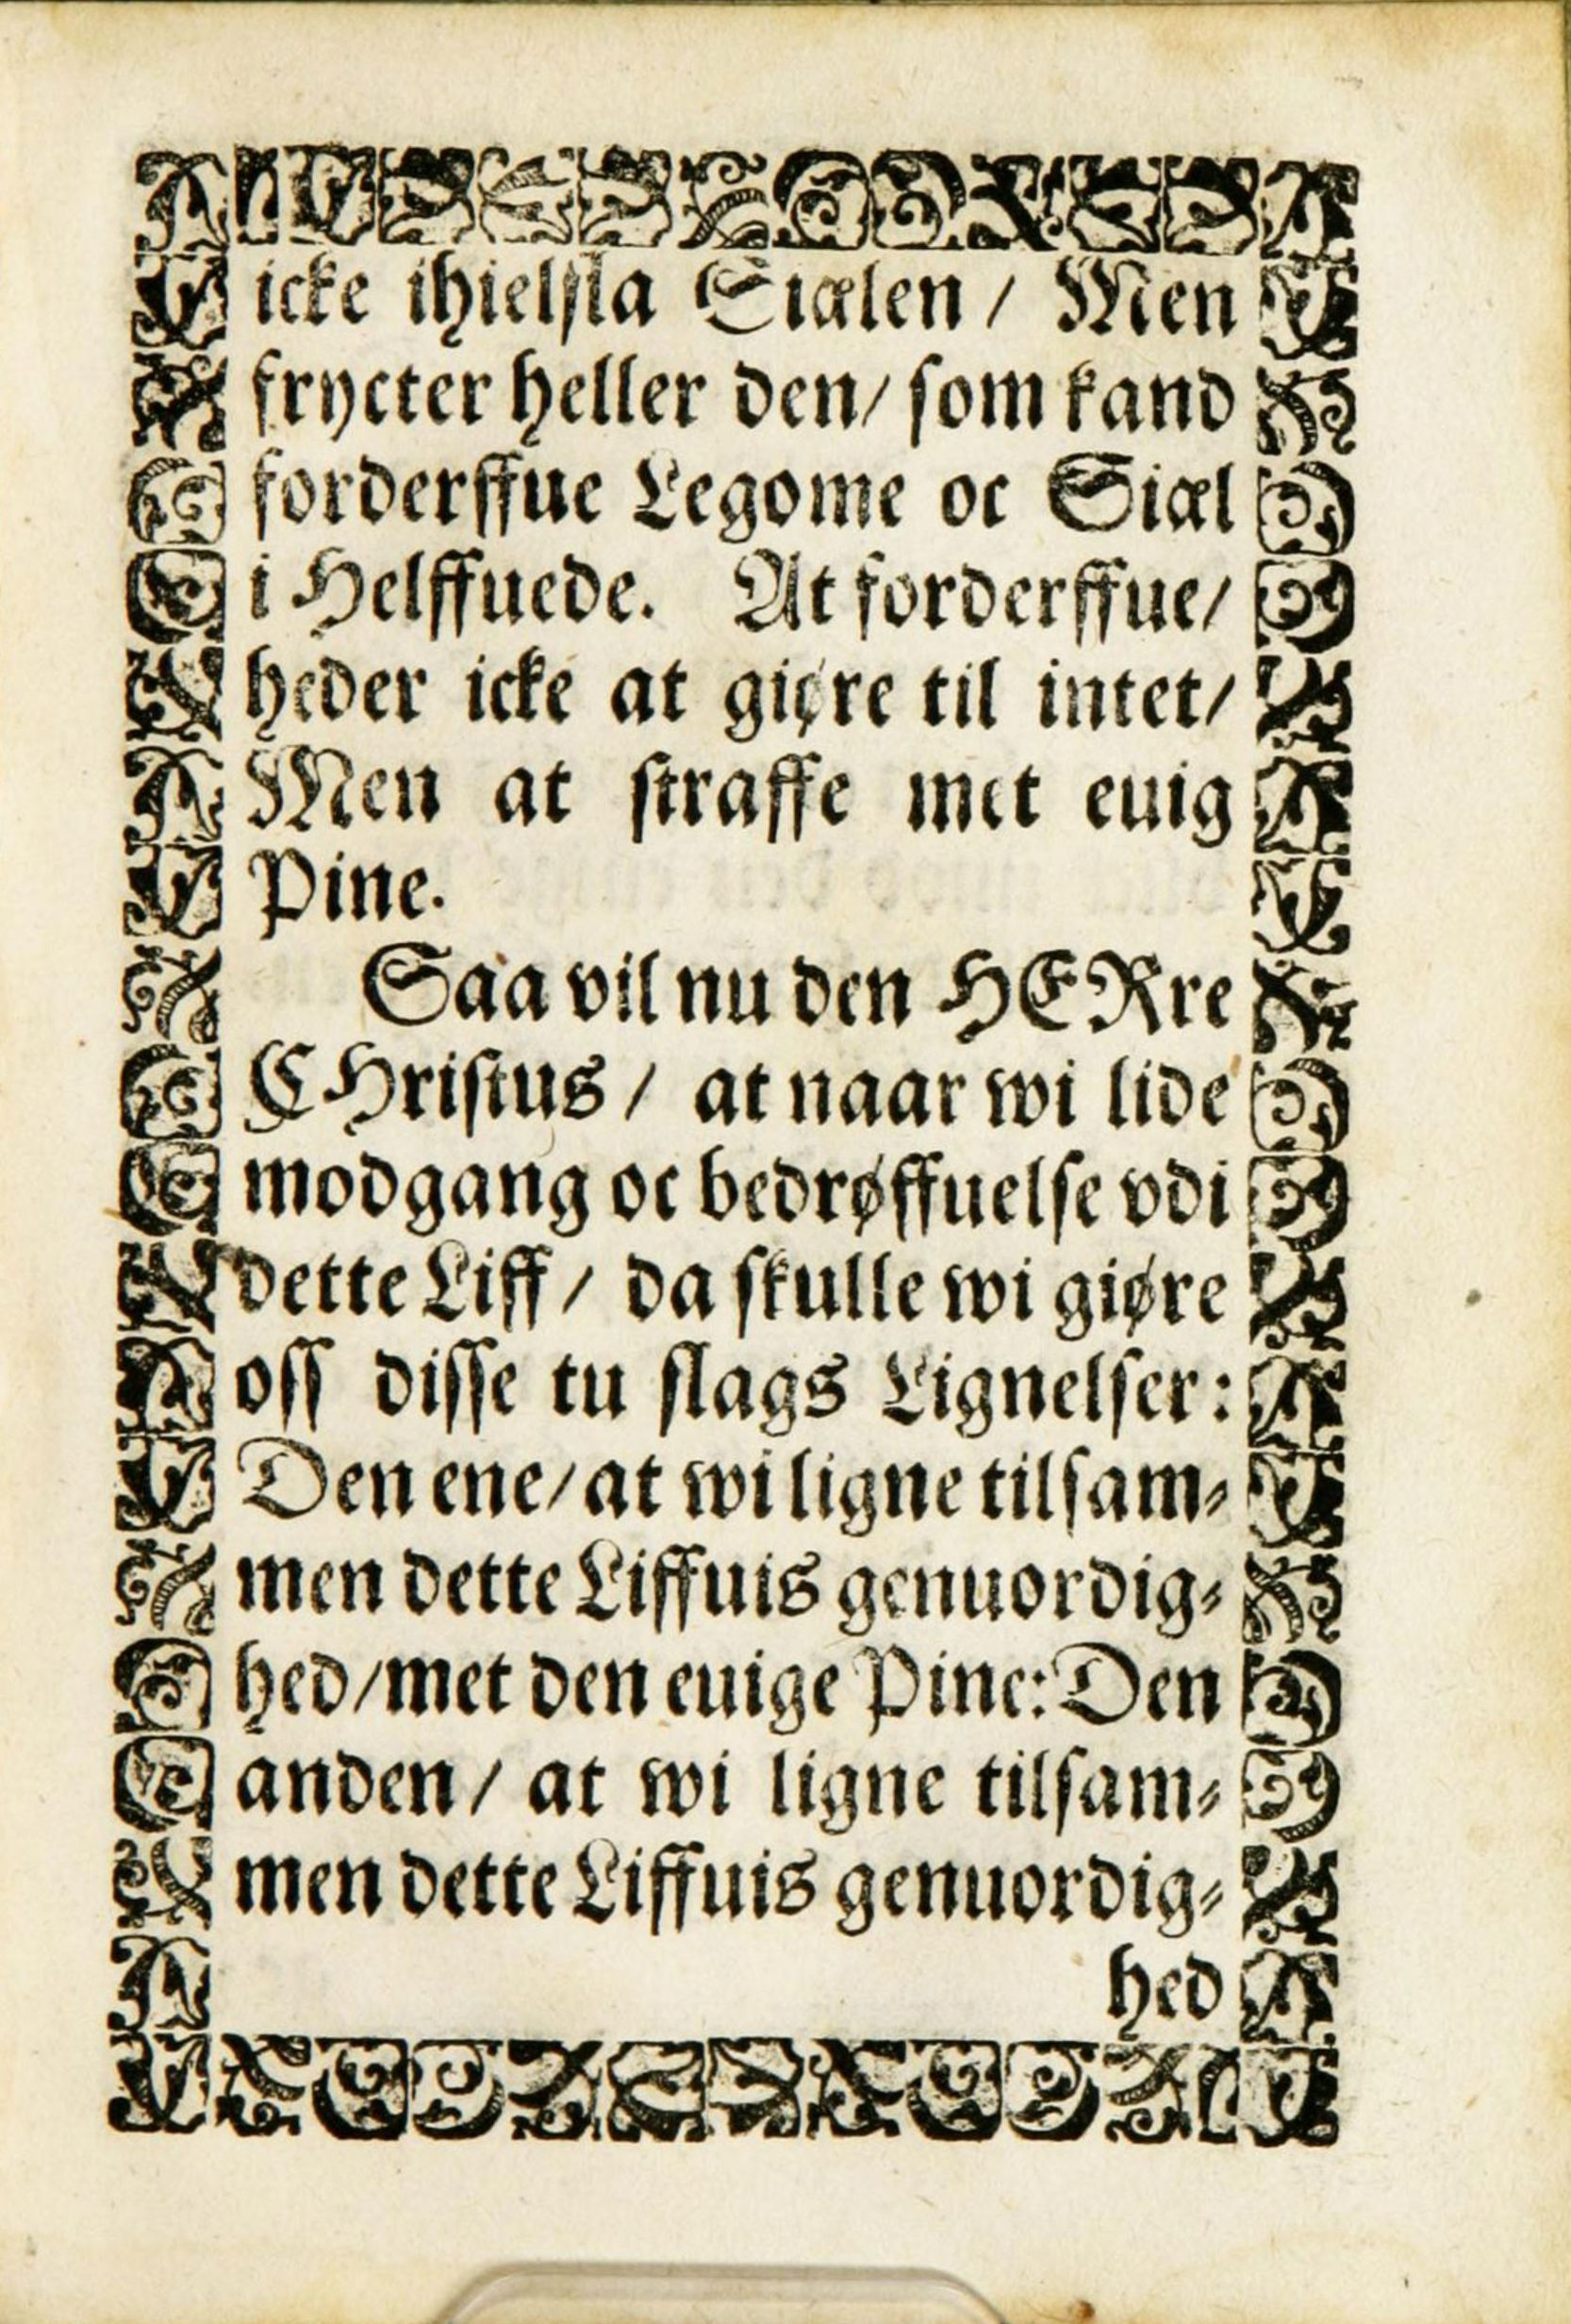 icke ihielsla Siælen / Men
frycter heller den / som kand
forderffue Legome oc Siæl
i Helffuede. At forderffue /
heder icke at giøre til intet /
Men at straffe met euig
Pine.
Saa vil nu den HERre
CHristus / at naar wi lide
modgang oc bedrøffuelse vdi
dette Liff / da skulle wi giøre
oss disse tu slags Lignelser:
Den ene / at wi ligne tilsam⸗
men dette Liffuis genuordig⸗
hed / met den euige Pine: Den
anden / at wi ligne tilsam⸗
men dette Liffuis genuordig⸗
hed